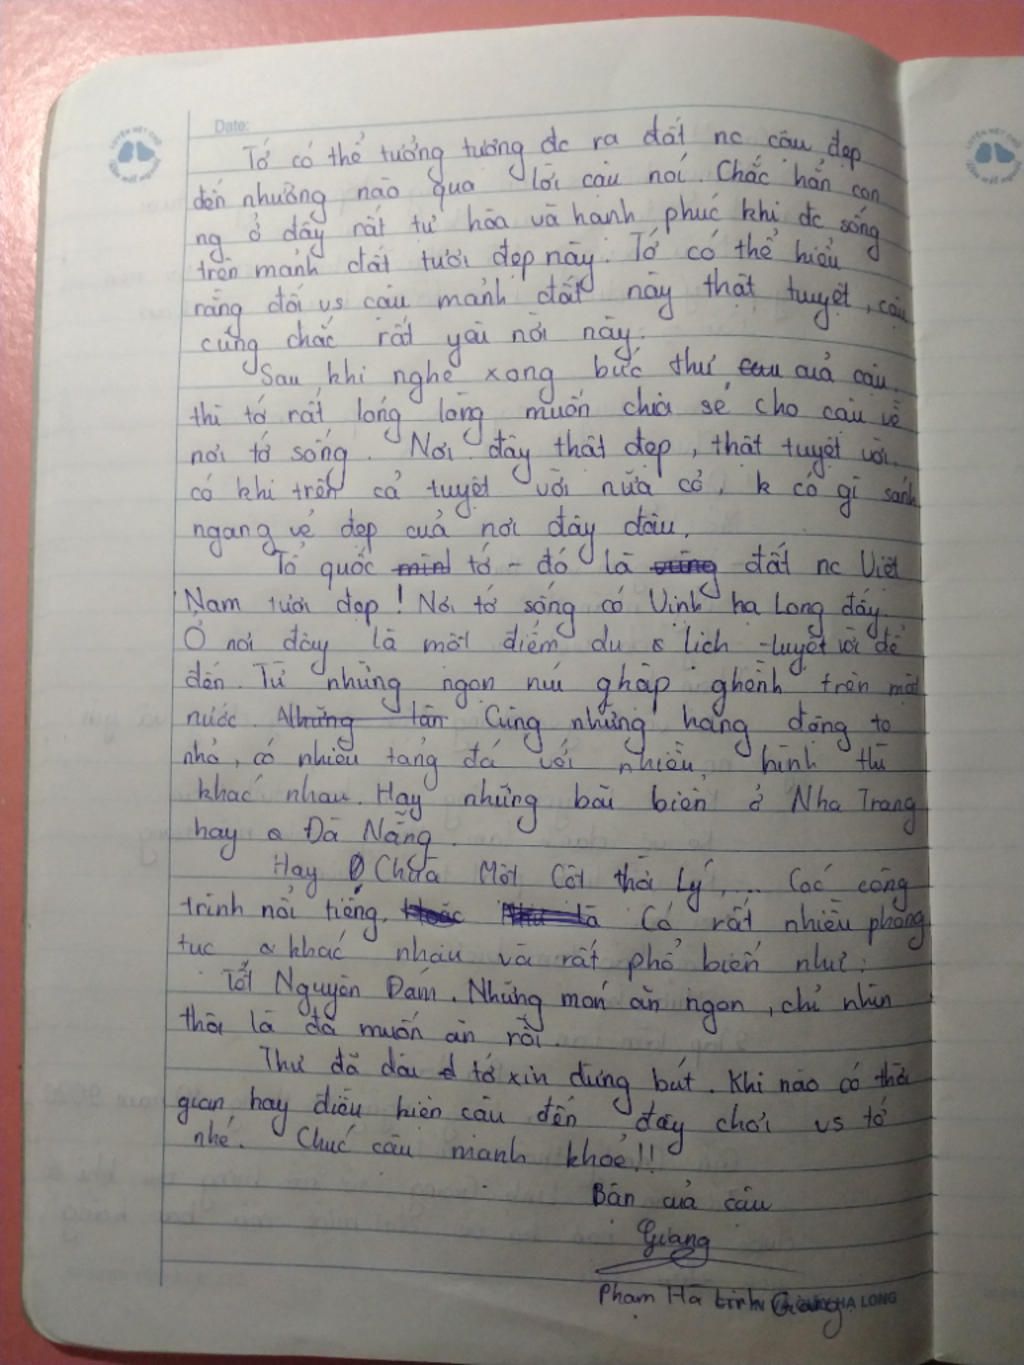 Date:
Tớ có thể tưởng tượng đc ra đất nc cậu đẹp
đến nhường nào qua lời cậu nói. Chắc hẳn con
ng ở đây rất tự hào và hạnh phúc khi đc sống
trên mảnh đất tươi đẹp này. Tớ có thể hiểu
rằng đối vs cậu mảnh đất này thật tuyệt, cậu
cũng chắc rất yêu nơi này.
Sau khi nghe xong bức thư của cậu
thì tớ rất lóng lòng muốn chia sẻ cho cậu về
nơi tớ sống. Nơi đây thật đẹp, thật tuyệt vời,
có khi trên cả tuyệt vời nữa cơ, k có gì sánh
ngang vẻ đẹp của nơi đây đâu.
Tổ quốc tớ - đó là đất nc Việt
Nam tươi đẹp! Nơi tớ sống có Vịnh hạ Long đấy.
Ở nơi đây là một điểm du lịch tuyệt vời để
đến. Từ những ngọn núi ghập ghềnh trên mặt
nước. Cùng những hang động to
nhỏ, có nhiều tảng đá với nhiều hình thù
khác nhau. Hay những bãi biển ở Nha Trang
hay Đà Nẵng.
Hay Chùa Một Cột thời Lý,... Các công
trình nổi tiếng. Có rất nhiều phong
tục khác nhau và rất phổ biến như:
Tết Nguyên Đám. Những món ăn ngon, chỉ nhìn
thôi là đã muốn ăn rồi.
Thư đã dài tớ xin dừng bút. Khi nào có thời
gian hay điều kiện cậu đến đây chơi vs tớ
nhé. Chúc cậu mạnh khoẻ!!
Bạn của cậu
Giang
Phạm Hà Linh Giang
HẠ LONG